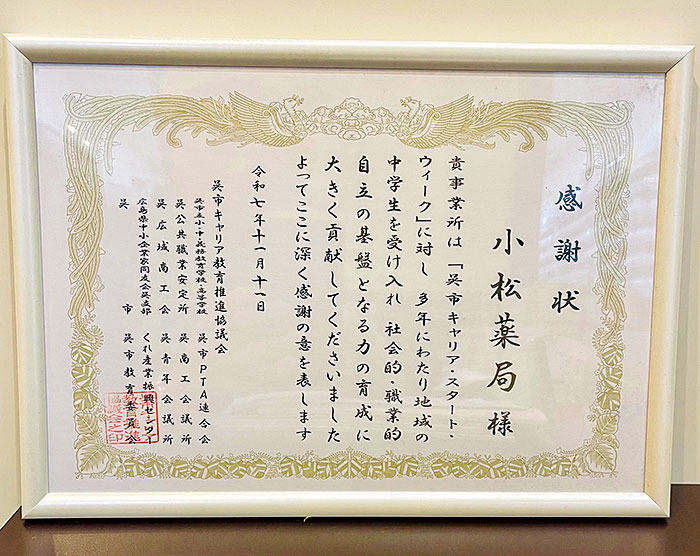 感謝状
小松薬局様
貴事業所は「呉市キャリア・スタート・
ウィーク」に対し多年にわたり地域の
中学生を受け入れ社会的・職業的
自立の基盤となる力の育成に
大きく貢献してくださいました
よってここに深く感謝の意を表します
令和七年十一月十一日
呉市キャリア教育推進協議会
呉市立小・中・義務教育学校・高等学校
呉市PTA連合会
呉公共職業安定所
呉商工会議所
呉広域商工会
呉青年会議所
広島県中小企業家同友会呉支部
くれ産業振興センター
呉市
呉市教育委員会